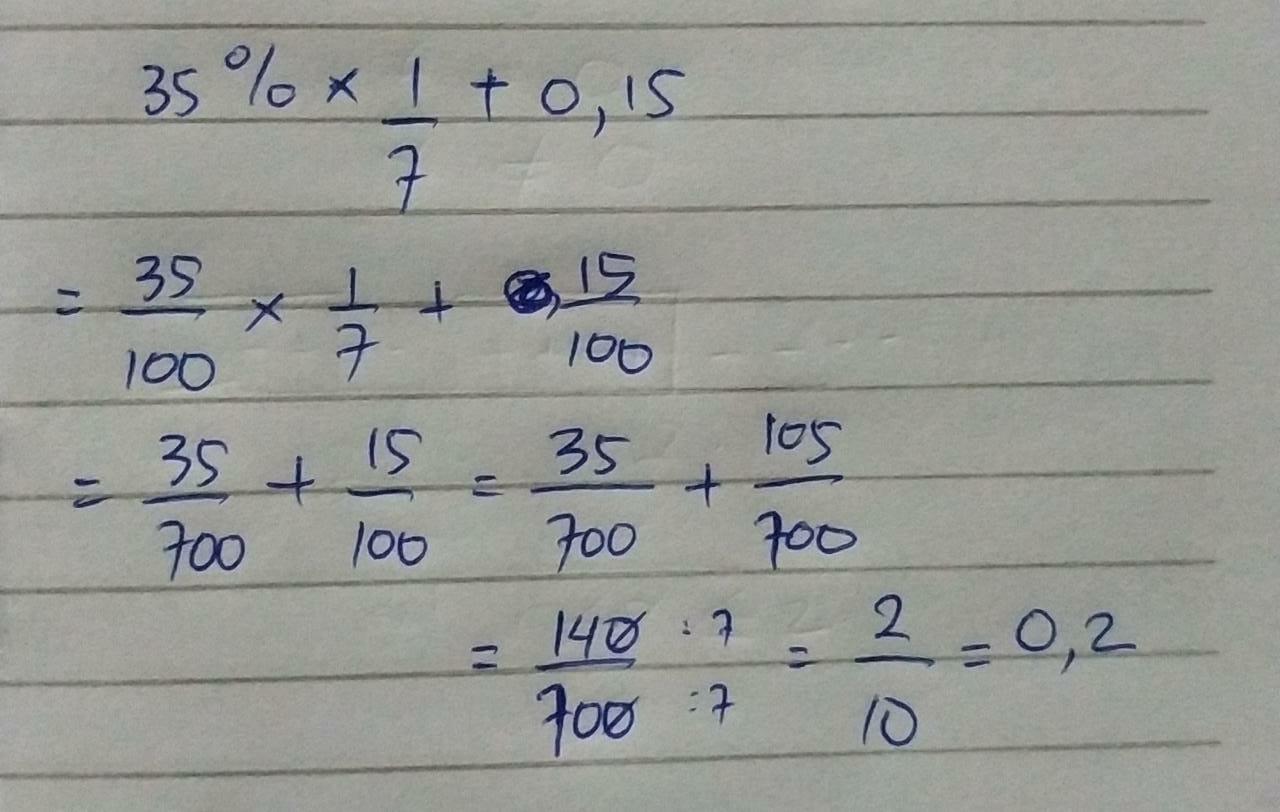 35% × 1/7 + 0,15
= 35/100 × 1/7 + 15/100
= 35/700 + 15/100 = 35/700 + 105/700
= 140/700 :7/:7 = 2/10 = 0,2